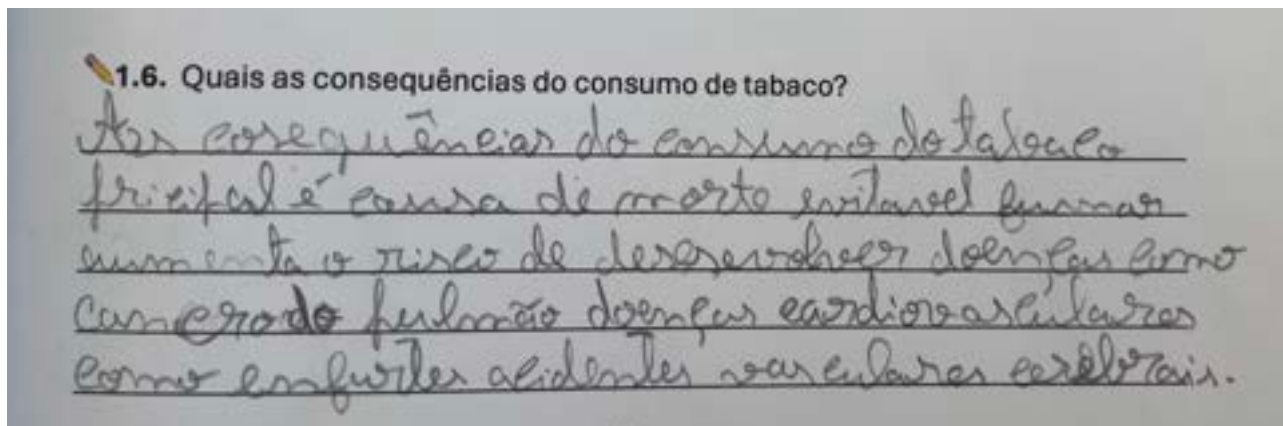 1.6. Quais as consequências do consumo de tabaco?
As cosequências do consumo do tabaco
pricipal é causa de morte evitavel fumar
aumenta o risco de desesevolver doenças como
cancero do pulmão doenças cardiovasculares
como enfurtes acidentes vasculares cerebrais.